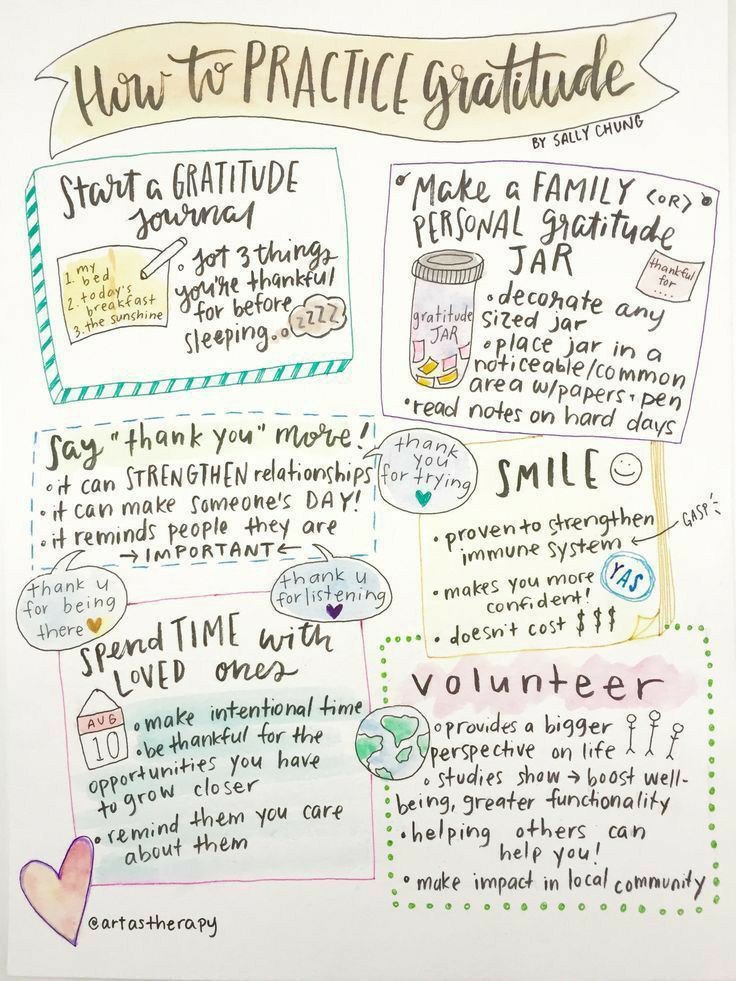 How to PRACTICE gratitude
BY SALLY CHUNG
Start a GRATITUDE
journal
1. my
bed
2. today's
breakfast
3. the sunshine
• Jot 3 things
you're thankful
for before
sleeping...
zzzz
Make a FAMILY <OR>
PERSONAL gratitude
JAR
thankful
for
....
gratitude
JAR
• decorate any
sized jar
• place jar in a
noticeable/common
area w/papers + pen
• read notes on hard days
Say "thank you" more!
• it can STRENGTHEN relationships
• it can make someone's DAY!
• it reminds people they are
→ IMPORTANT ←
thank
you
for trying
thank u
for being
there
thank u
for listening
SMILE
• proven to strengthen
immune system ←
GASP!
• makes you more
confident!
YAS
• doesn't cost $$$
Spend TIME with
LOVED ones
AUG
10
• make intentional time
• be thankful for the
opportunities you have
to grow closer
• remind them you care
about them
volunteer
• provides a bigger
perspective on life
• studies show → boost well-
being, greater functionality
• helping others can
help you!
• make impact in local community
@artastherapy